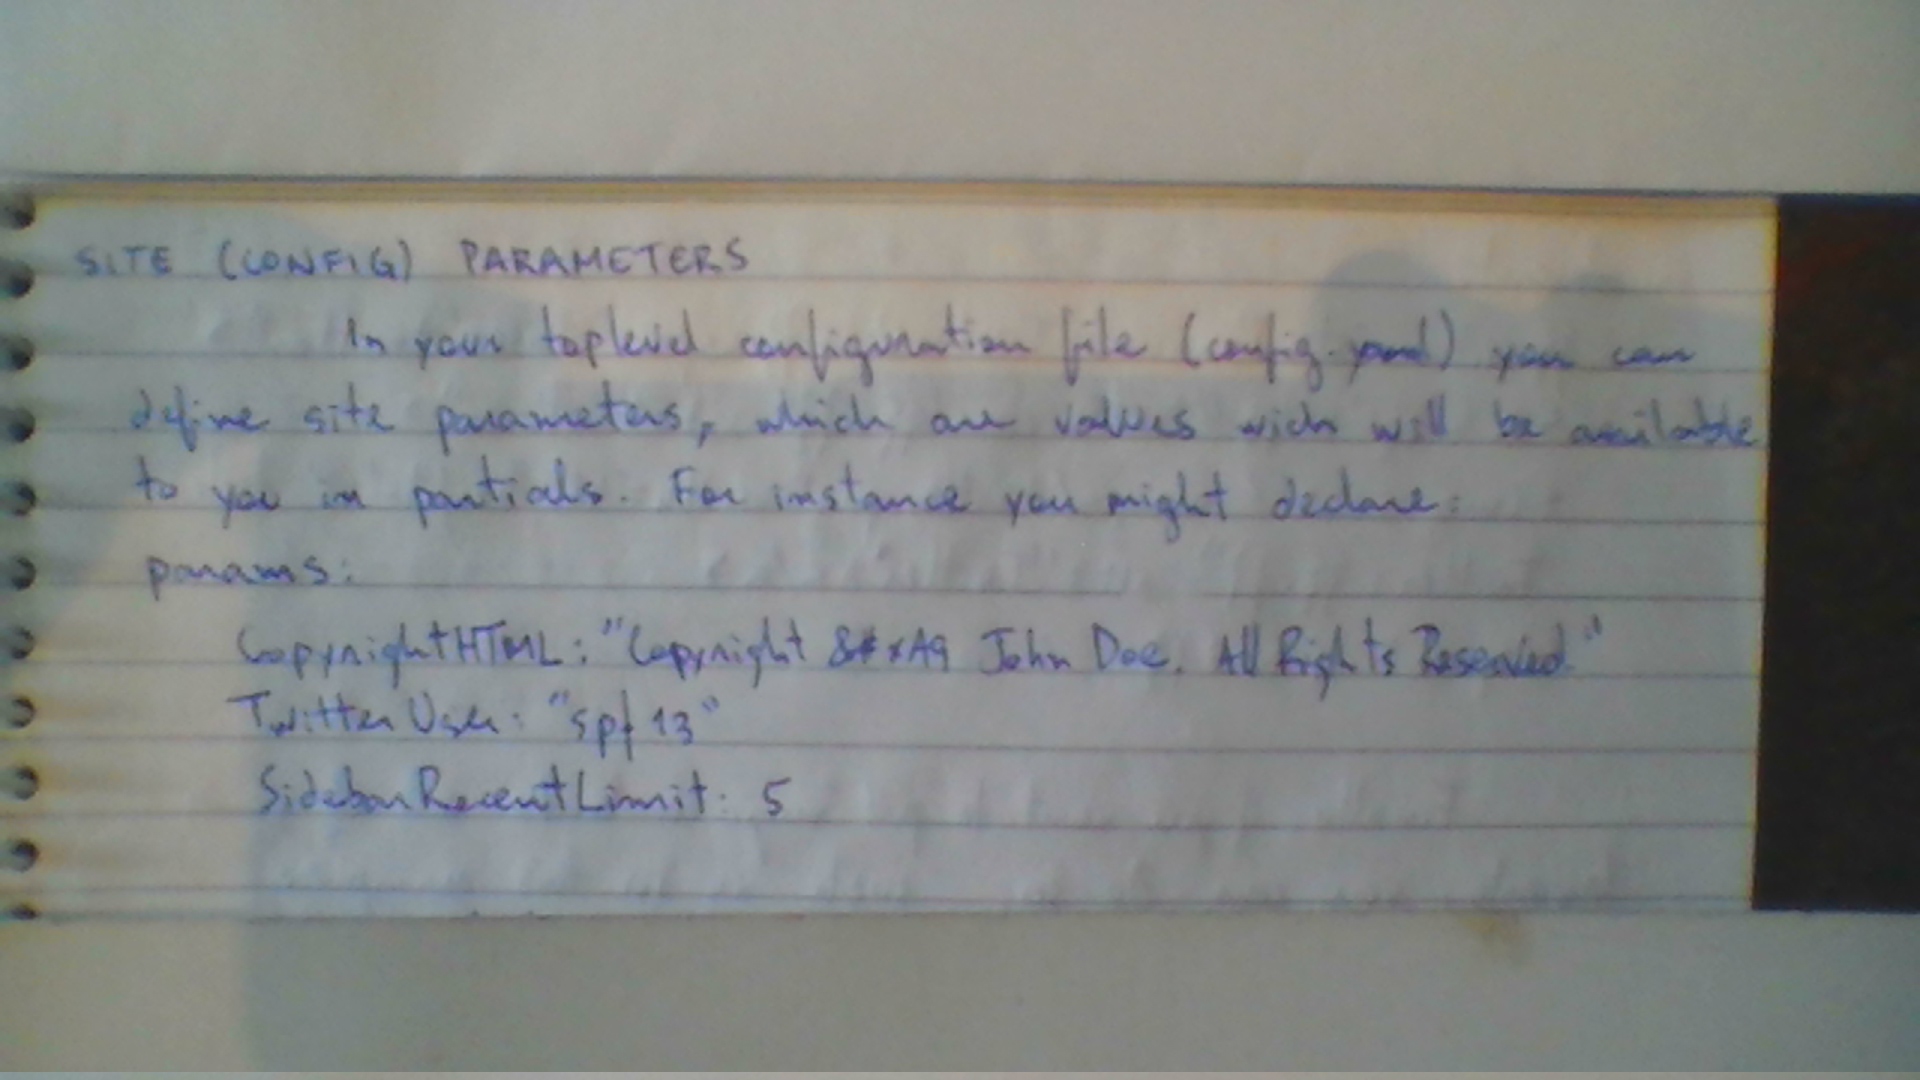 SITE (CONFIG) PARAMETERS
In your toplevel configuration file (config.yaml) you can
define site parameters, which are values wich will be available
to you in partials. For instance you might declare:
params:
CopyrightHTML: "Copyright &#xA9 John Doe. All Rights Reserved."
TwitterUser: "spf13"
SidebarRecentLimit: 5